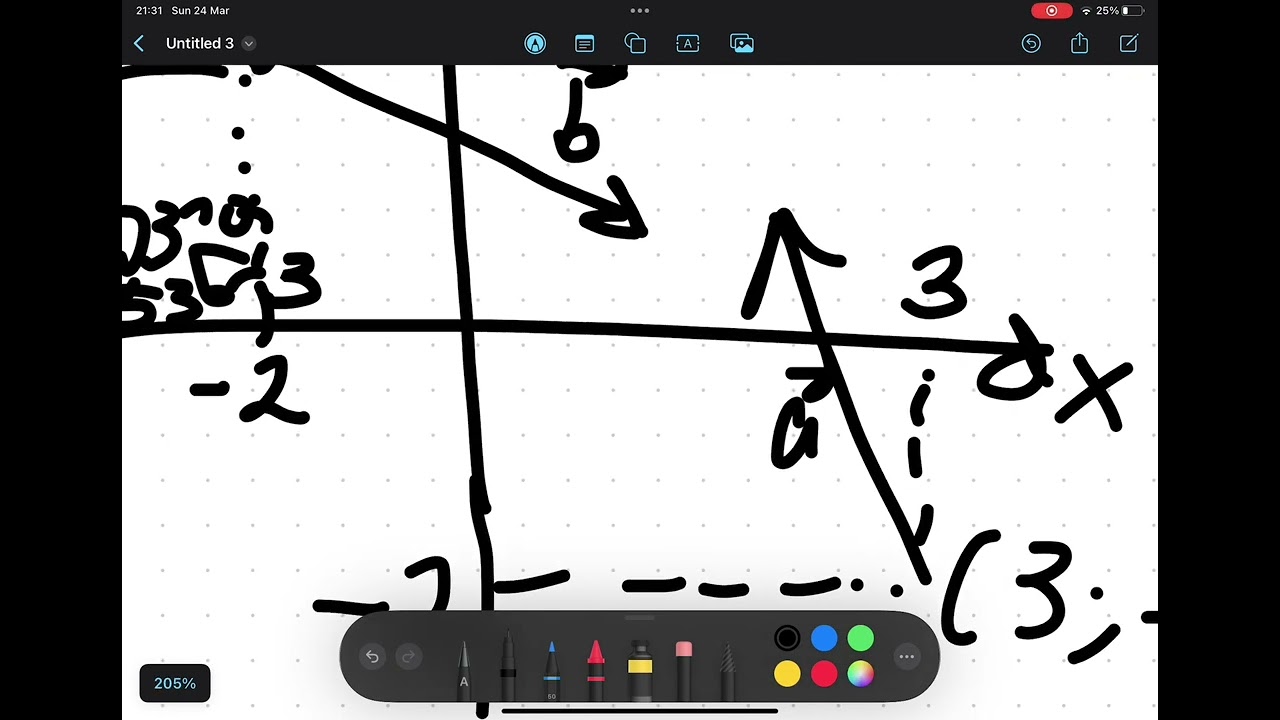 21:31 Sun 24 Mar
25%
Untitled 3
A
b
3
3
-2
a
x
(3;
A
50
205%